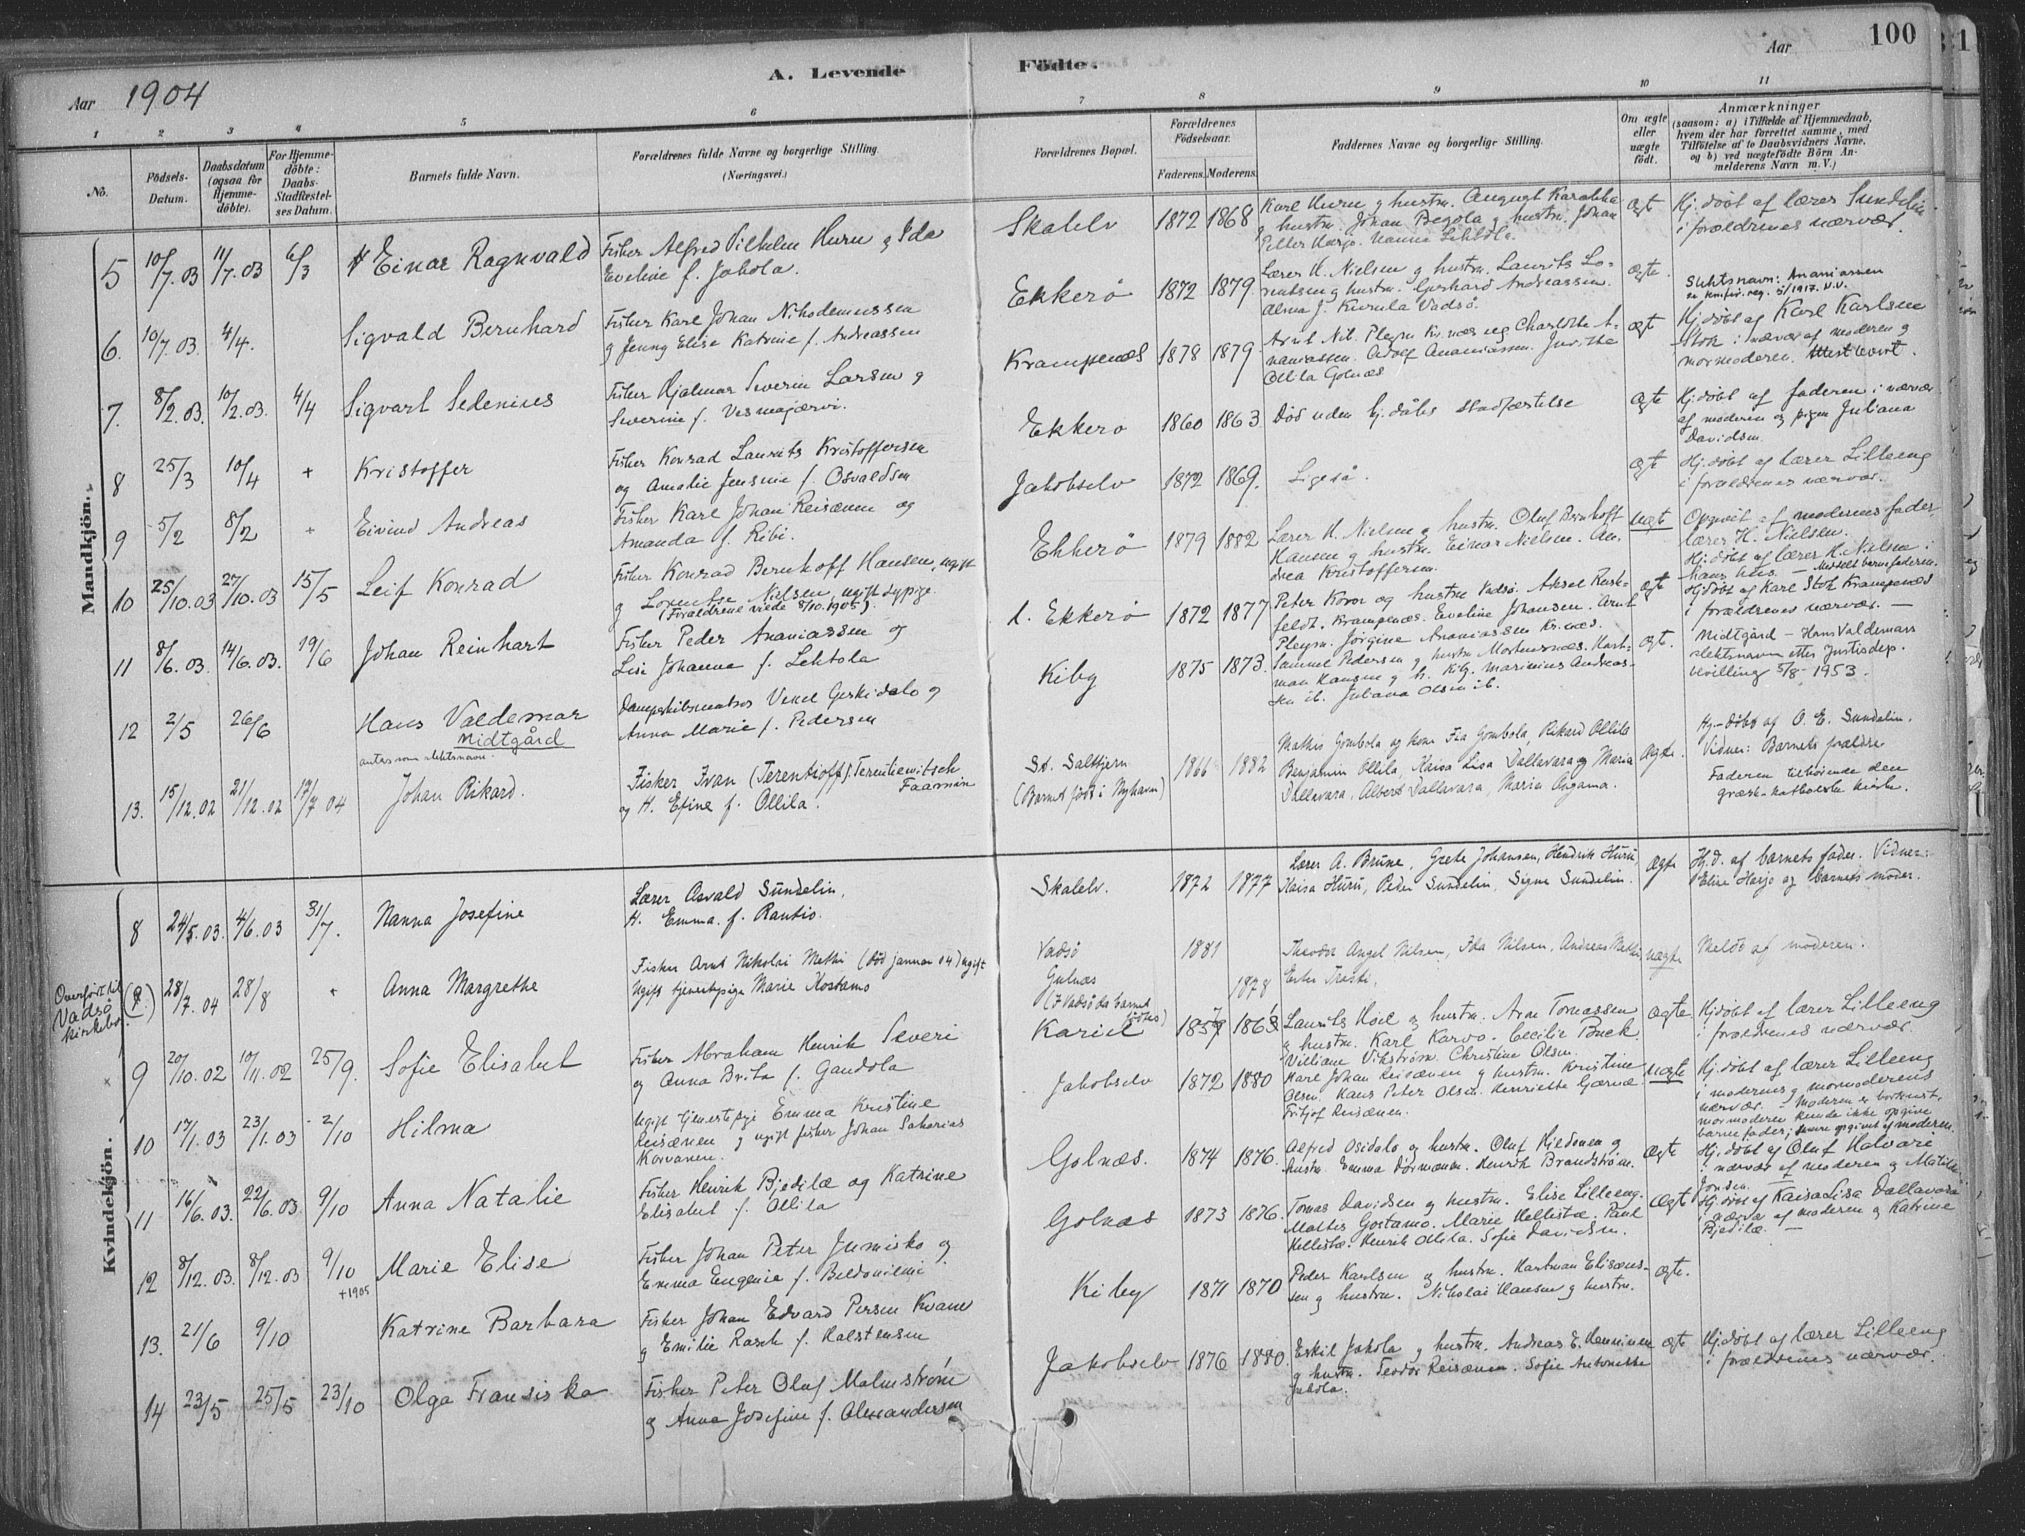 100
Aar 1904
A. Levende Födte.
Aar
1 2 3 4 5 6 7 8 9 10 11
No.
Födsels-
Datum.
Daabsdatum
(ogsaa for
Hjemme-
döbte).
For Hjemme-
döbte:
Daabs-
Stadfæstel-
ses Datum.
Barnets fulde Navn.
Forældrenes fulde Navne og borgerlige Stilling.
(Næringsvei.)
Forældrenes Bopæl.
Forældrenes
Födselsaar.
Faderens. Moderens.
Faddernes Navne og borgerlige Stilling.
Om ægte
eller
uægte
født.
Anmærkninger
(saasom: a) i Tilfælde af Hjemmedaab,
hvem der har forrettet samme, med
Tilföielse af to Daabsvidners Navne,
og b) ved uægtefödte Börn An-
melderens Navn m. V.)
Mandkjön.
5 10/7.03 11/7.03 6/3 Einar Ragnvald
Fisker Alfred Vilhelm Huru og Ida
Eveline f. Jakola.
Skalelv 1872 1868
Karl Huru og hustru. August Karakka
og hustru. Johan Begola og hustru. Johan
Petter Harjo. Nanna Lehtola.
ægt
Hj. døbt af lærer Sundelin
i forældrenes nærvær.
6. 10/7.03. 4/4. Sigvald Bernhard
Fisker Karl Johan Nikodemussen
og Jenny Elise Katrine f. Andreassen
Ekkerø 1872 1879
Lærer H. Nielsen og hustru. Laurits Lo-
rentsen og hustru. Gerhard Andreassen.
Alma J. Kurula Vadsø.
ægte.
Slektsnavn: Ananiassen
se konfir. reg. 5/1917. V.V.
7. 8/2.03. 10/2.03. 4/4 Sigvart Sedenius
Fisker Hjalmar Severin Larsen og
Severine f. Vesmajærvi.
Krampenæs 1878 1879
Arnt Nil. Pleym Kr.næs og Charlotte A-
naniassen. Adolf Ananiassen. Jur. the
Ollila Golnæs
ægt
Hj. døbt af Karl Karlsen
Stok i nærvær af moderen og
mormoderen. Attest levert.
8 25/3 10/4 + Kristoffer
Fisker Konrad Laurits Kristoffersen
og Amalie Jensine f. Osvaldsen
Ekkerø 1860 1863
Død uden hj. dåbs stadfæstelse
ægte
Hj. døbt af faderen i nærvær
af moderen og pigen Juliana
Davidsen.
9 5/2 8/2 + Eivind Andreas
Fisker Karl Johan Reisænen og
Amanda f. Ribi.
Jakobselv 1872 1869.
Ligeså.
ægt
Hj. døbt af lærer Lilleeng
i forældrenes nærvær.
10 25/10.03 27/10.03 15/5 Leif Konrad
Fisker Konrad Bernhoff Hansen, ugift
og Lorentse Nielsen, ugift sypige.
(Forældrene viede 8/10.1905).
Ekkerø 1879 1882
Lærer H. Nielsen og hustru. Oluf Bernhoft
Hansen og hustru. Einar Nielsen. An-
drea Kristoffersen.
uægt
Opgivet af moderens fader,
lærer H. Nielsen.
Hj. døbt af lærer H. Nielsen i
hans hus. — Meldt barnefaderen.
11 8/6.03. 14/6.03. 19/6 Johan Reinhart
Fisker Peder Ananiassen og
Lise Johanne f. Lehtola
l. Ekkerø 1872 1877
Peter Koror og hustru Vadsø. Aksel Rusk-
feldt. Krampenæs. Eveline Johansen. Arnt
Pleym. Jørgine Ananiassen Kr.næs.
ægt
Hj. døbt af Karl Stok Krampenæs
i forældrenes nærvær. —
12 2/5 26/6 Hans Valdemar
Midtgård
antas som slektsnavn
Dampskibsmatros Venel Geskidalo og
Anna Marie f. Pedersen
Kiby 1875 1873.
Samuel Pedersen og hustru Mortensnæs. Hart-
man Hansen og h. Kiby. Marinius Andreas-
sen ib. Juliana Olsen ib.
ægt.
Midtgård — Hans Valdemars
slektsnavn etter Justisdep.
bevilling 5/8 1953.
13. 15/12.02 21/12.02 17/7 04 Johan Rikard.
Fisker Ivan (Terentioff) Terentiewitsch
Faarnin
og H. Efine f. Ollila.
St. Saltjern
(Barnet født i Nyhavn)
1866 1882
Mathis Gombola og kone Fia Gombola, Rikard Ollila
Benjamin Ollila, Kaisa Lisa Dallavara og Maria
Dallavara, Albert Dallavara, Maria Angama.
ægte.
Hj.-døbt af O. E. Sundelin.
Vidner: Barnets forældre
Faderen tilhørende den
græsk-katholske kirke.
Kvindekjön.
8 24/5.03. 4/6.03 31/7. Nanna Josefine
Lærer Osvald Sundelin,
H. Emma f. Rantio.
Skalelv. 1872 1877
Lærer A. Brune, Grete Johansen, Hendrik Huru,
Kaisa Huru, Peder Sundelin, Signe Sundelin.
ægte
Hj.d. af barnets fader. Vidner:
Elise Harjo og barnets moder.
Overført til
Vadsø
kirkebok.
(9.) 28/7.04 28/8 Anna Margrethe
Fisker Arnt Nikolai Methi (død januar 04) ugift
Ugift tjenestepige Marie Kostamo
Vadsø 1881
Golnæs 1878
(I Vadsø da barnet
fødtes)
Theodor Angel Nilsen, Ida Nilsen, Andreas Methi,
uægte
Meldt af moderen.
9 20/10.02 10/11.02 25/9. Sofie Elisabet
Fisker Abraham Henrik Severi
og Anna Brita f. Gandola
Kariel 1857 1863
Laurits Hoel og hustru. Arne Tomassen
og hustru. Karl Karvo. Cecilie Buck.
Villiam Vikstrøm. Christine Olsen.
ægte.
Hj. døbt af lærer Lilleeng
i forældrenes nærvær.
10 17/1.03 23/1.03 2/10 Hilma
Ugift tjenestepige Emma Kristine
Reisænen og ugift fisker Johan Sakarias
Korvanen.
Jakobselv 1872 1880
Karl Johan Reisænen og hustru. Kristine
Olsen. Hans Peter Olsen. Henriette Gjærnæ.
Fritjof Reisænen.
uægte
Hj. døbt af lærer Lilleeng
i moderens og mormoderens
nærvær. — Moderen er bortreist,
mormoderen kunde ikke opgive
barnefader; senere opgivet af moderen.
11 16/6.03. 22/6.03. 9/10 Anna Natalie
Fisker Henrik Bjedilæ og Katrine
Elisabet f. Ollila
Golnæs. 1874 1876.
Alfred Osidalo og hustru. Oluf Hjedonen og
hustru. Emma Dørmænen. Henrik Brandstrøm.
ægte
Hj. døbt af Oluf Halvari
i nærvær af moderen og Matilde
Jonsen.
12 8/12.03. 8/12.03 9/10 Marie Elise
+1905
Fisker Johan Peter Jumisko og
Emma Eugenie f. Beldoniemi
Golnæs 1873 1876.
Tomas Davidsen og hustru. Elise Lilleeng.
Mathis Gostamo. Marie Hellistæ. Paul
Hellistæ. Henrik Ollila. Sofie Davidsen.
ægt
Hj. døbt af Kaisa Lisa Dallavara
i nærvær af moderen og Katrine
Bjedilæ. —
13. 21/6 9/10 Katrine Barbara
Fisker Johan Edvard Persen Kvam
og Emilie Rasch f. Halstensen
Kiby 1871 1870
Peder Karlsen og hustru. Hartman Eliseus-
sen og hustru. Nikolai Hansen og hustru.
ægte.
14 23/5 25/5 23/10 Olga Fransiska
Fisker Peter Oluf Malmstrøm
og Anna Josefine f. Alexandersen
Jakobselv 1876 1880.
Eskil Jakola og hustru. Andreas E. Henninen
og hustru. Teodor Reisænen. Sofie Antonette
Jakola.
ægte
Hj. døbt af lærer Lilleeng
i forældrenes nærvær.